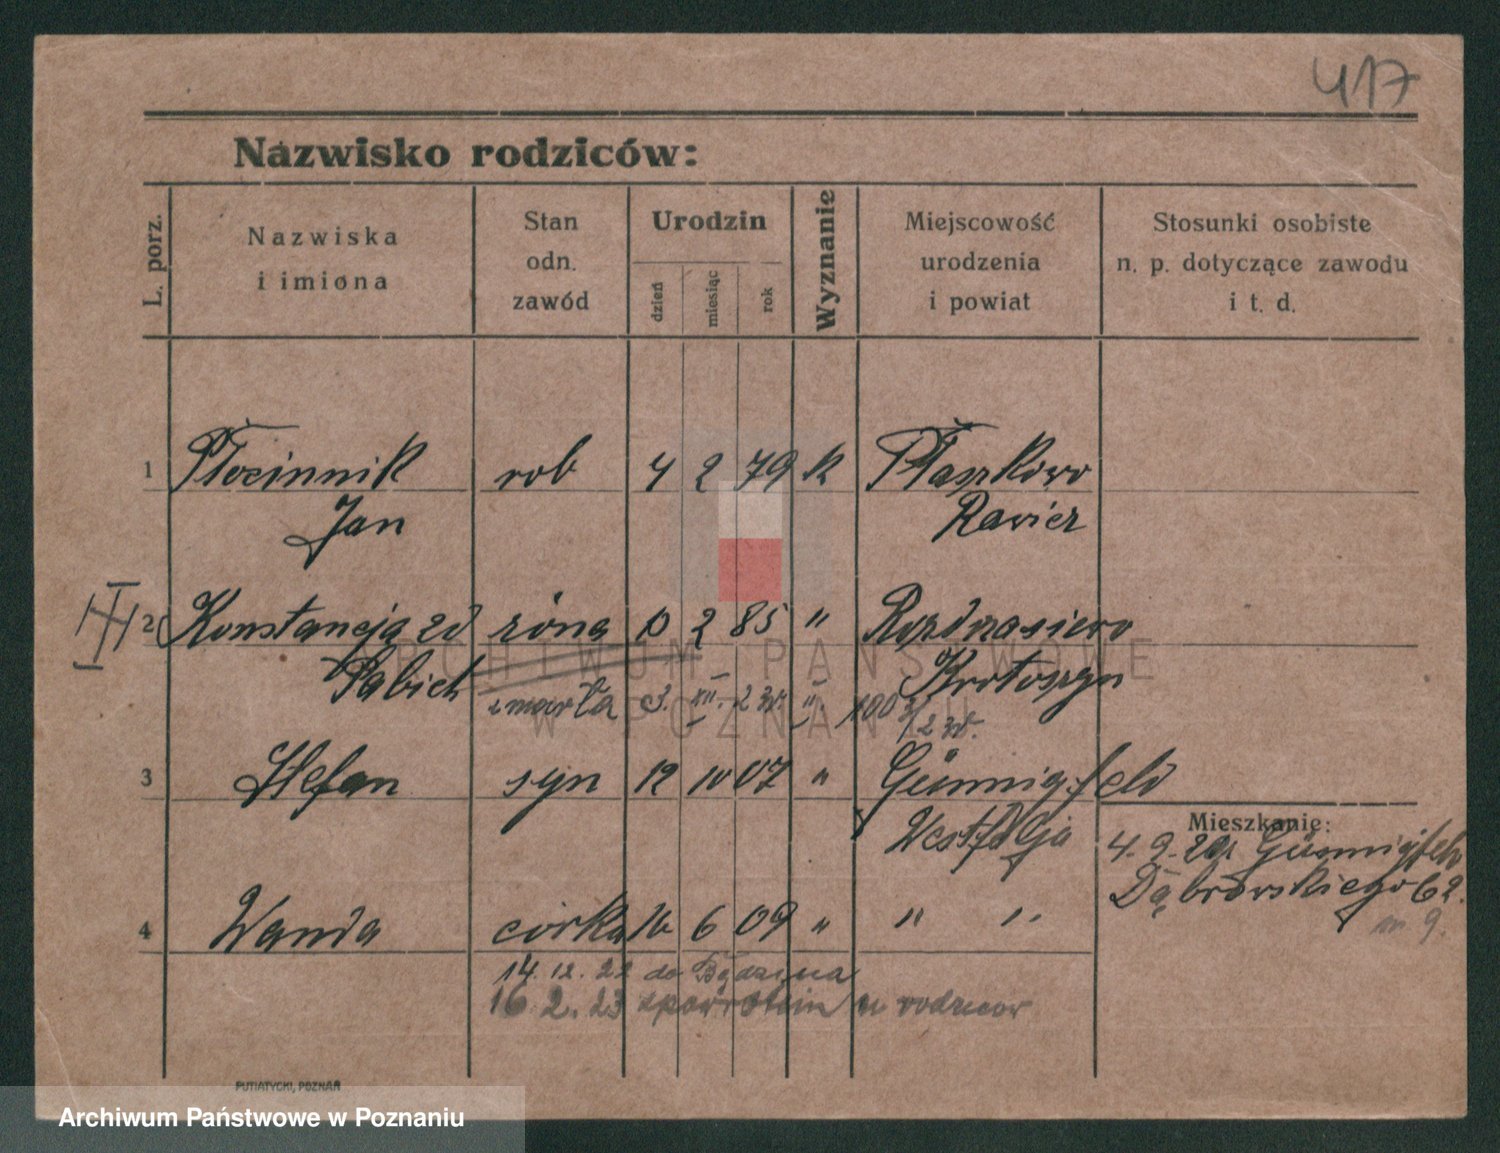 417
Nazwisko rodziców:
L. porz.
Nazwiska
i imiona
Stan
odn.
zawód
Urodzin
dzień
miesiąc
rok
Wyznanie
Miejscowość
urodzenia
i powiat
Stosunki osobiste
n. p. dotyczące zawodu
i t. d.
1 Płocinnik rob 4 2 79 k Ptaszkowo
Jan
2 Konstancja zd żona 2 85 "
Pabich Krotoszyn
zmarła 3. XII. 2
3 Stefan syn 12 10 07 " Günnigfeld
Mieszkanie:
4. 9. Günnigfeld
Dąbrowskiego 62.
m 9.
4 Wanda córka 16 6 09 " " "
14. 12. 22 do
16 2. 23 u rodziców
PUTIATYCKI, POZNAŃ
ARCHIWUM PAŃSTWOWE
W POZNANIU
Archiwum Państwowe w Poznaniu